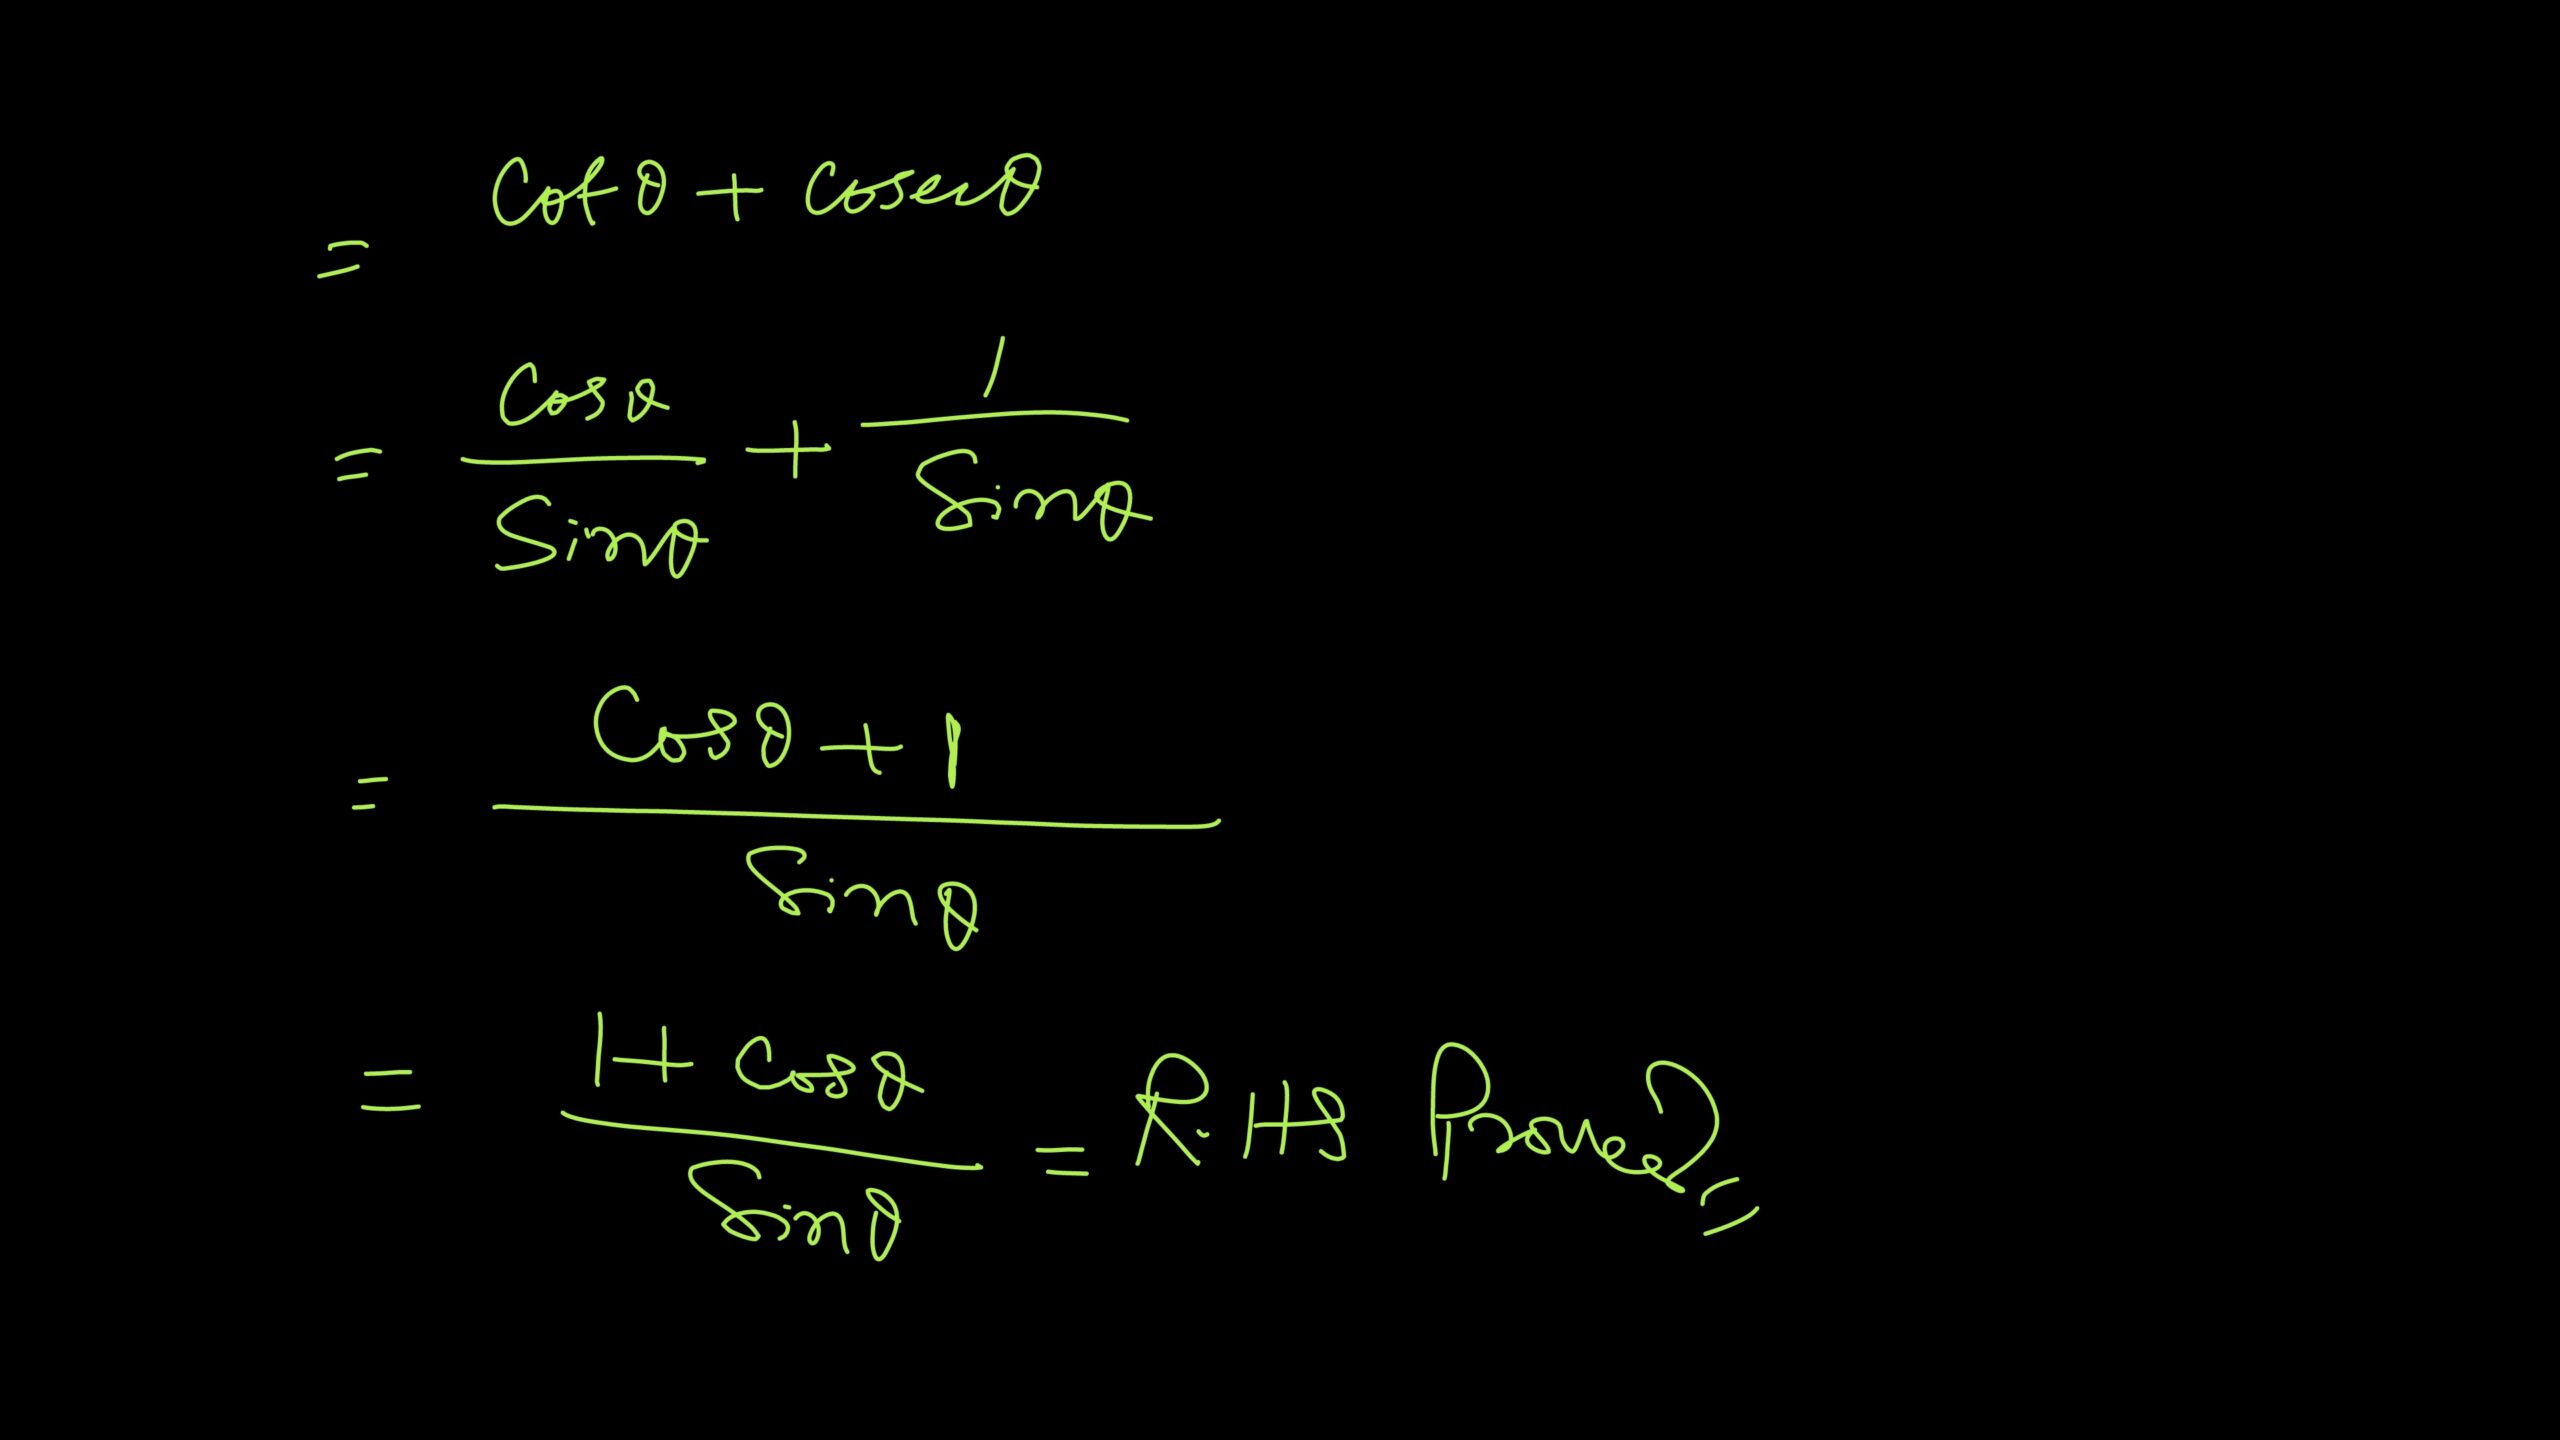 = cotθ + cosecθ
= Cosθ/Sinθ + 1/Sinθ
= Cosθ + 1/Sinθ
= 1 + Cosθ/Sinθ = R.HS Proved,,